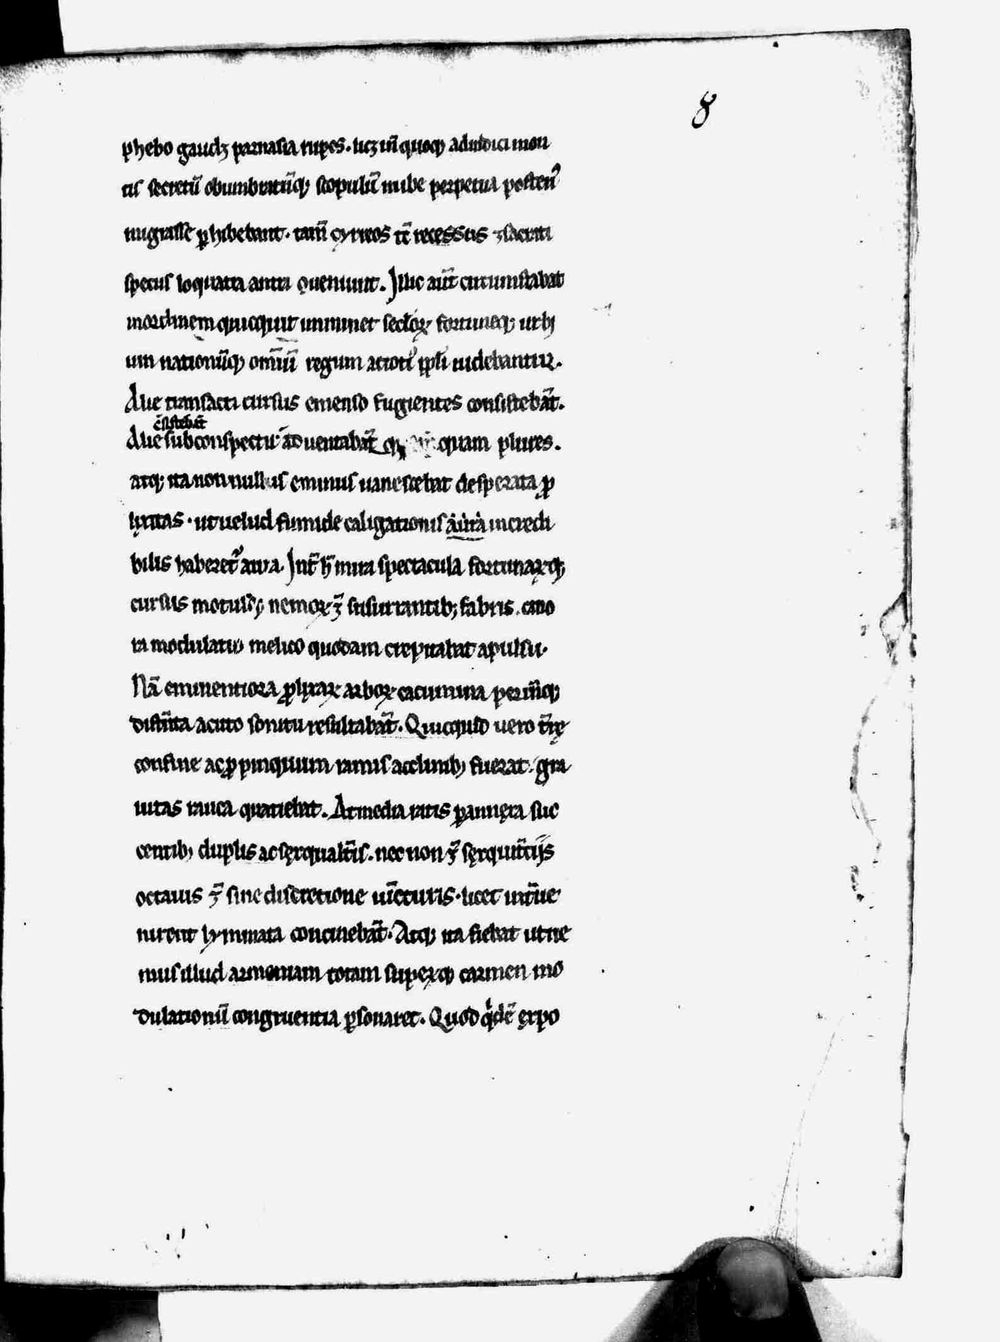 8
phebo gaudꝫ parnasia rupes. licꝫ in̄ quoqꝫ ad indici mon
tis secretū obumbratūqꝫ scopulū nube perpetua posteri᾽
migrasse ꝑhibebant. tam̄ cyrreos tc̄ recessus ⁊ sacrati
specus loquatia antra ꝯueniunt. Illic aut̄ circumstabat
in ordinem quicquit imminet sc̄loꝝ fortuneqꝫ urbi
um nationūqꝫ omniū regum ac toti᾽ ppl̄i uidebantur.
Alie transacti cursus emenso fugientes consistebāt.
cōsistebāt
Alie sub conspectu adventabāt quam plures.
atqꝫ ita non nullis eminus uanescebat desperata ꝓ
lixitas. ut uelud fumide caligationis aura incredi
bilis haberet᾽ aura. Int̄ h̄ mira spectacula fortunaꝝqꝫ
cursus nemoꝝ ⁊̄ susurrantibꝫ fabris cano
ra modulatio melico quodam crepitabat apulsu.
Nā eminentiora ꝓlixaꝝ arboꝝ cacumina perīdeqꝫ
distīta acuto sonitu resultabāt. Quicquid vero t̄rę
confine ac ꝓpinquum ramis acclinibꝫ fuerat. gra
uitas rauca quatiebat. At media ratis ꝑ annexa suc
centibꝫ duplis ac sęsqualt̄is. nec non ⁊̄ sęsquit̄tijs
octauis ⁊̄ sine discretione iūcturis. licet int̄ue
nirent lymmata concinebāt. Atqꝫ ita fiebat ut ne
mus illud armoniam totam superqꝫ carmen mo
dulationū congruentia ꝑsonaret. Quod qⁱdē expo